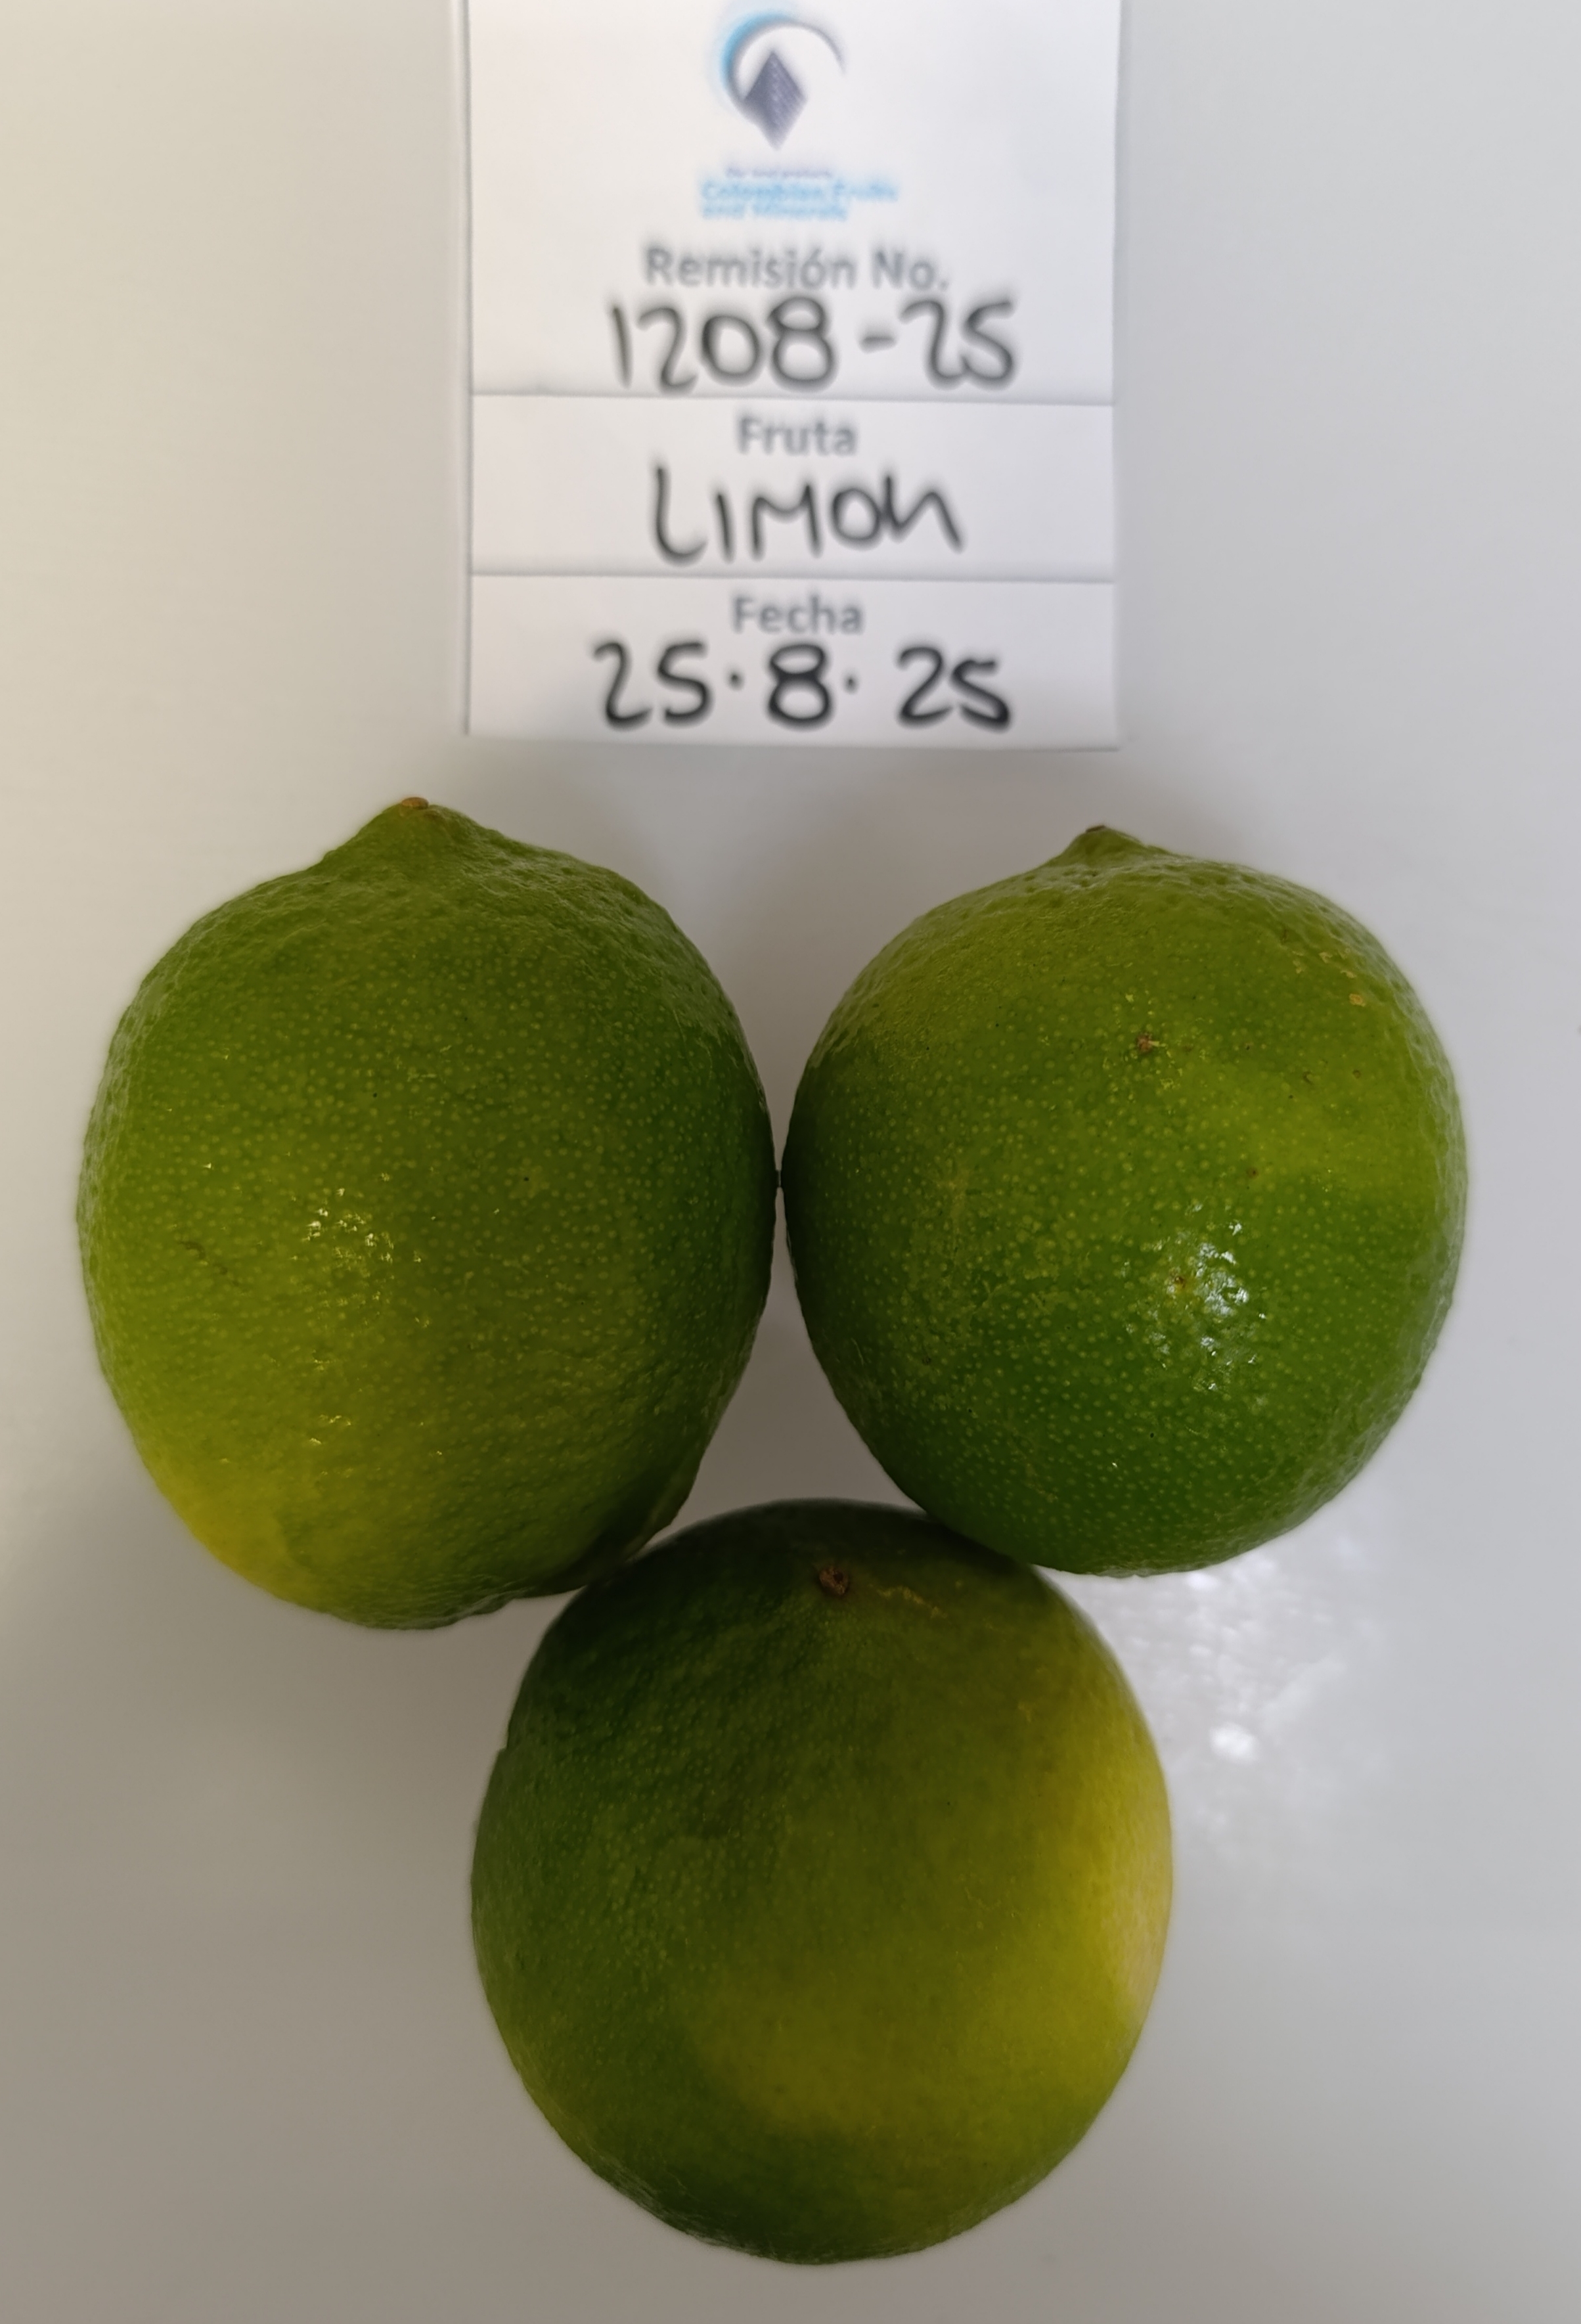 Colombian Fruits
and Minerals
Remisión No.
1208-25
Fruta
LIMON
Fecha
25·8·25